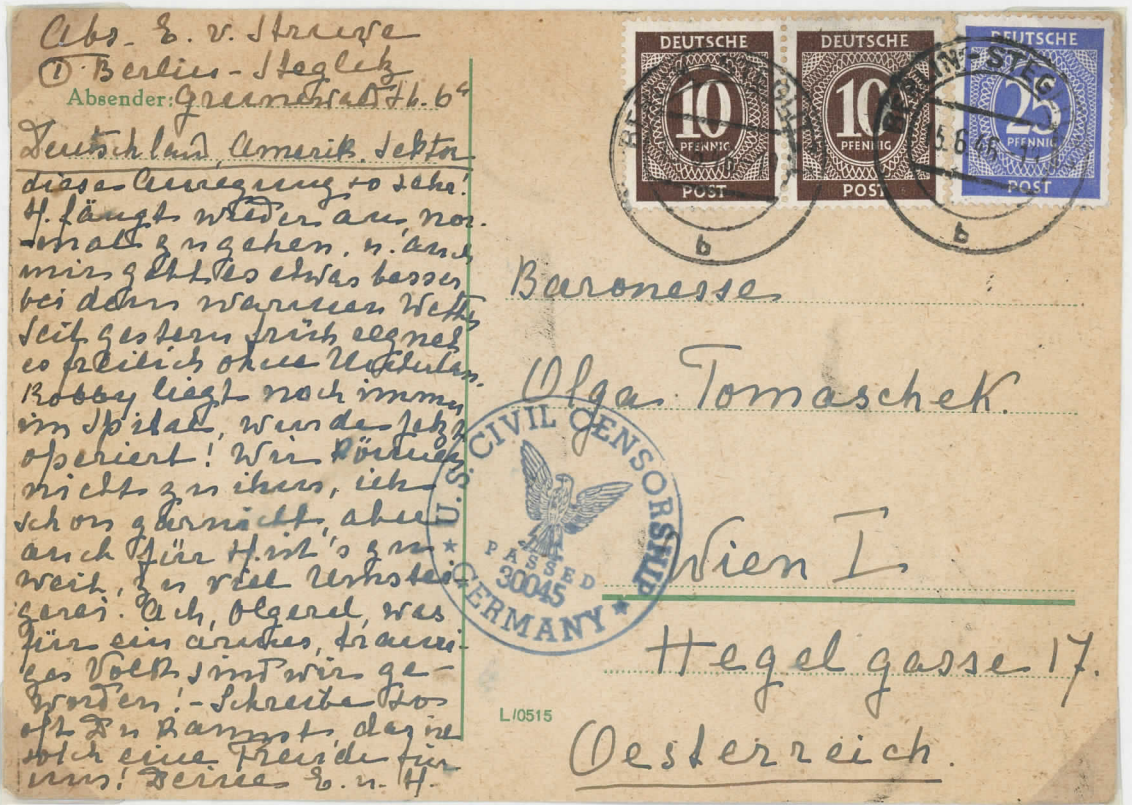 Abs. E. v. Struve
(1) Berlin-Steglitz
Absender: Grunewaldstr. 6a
Deutschland, Amerik. Sektor
diese Anregung so sehr!
H. fängt wieder an, nor-
mal zu gehen, u. auch
mir geht es etwas besser
bei dem warmen Wetter
Seit gestern früh regnet
es freilich ohne Unterlass.
Robby liegt noch immer
im Spital, wurde jetzt
operiert! Wir können
nicht zu ihm, ich
schon garnicht, aber
auch für H. ist's zu
weit, zu viel Umstei-
gerei. Ach, Olgerl, was
für ein armes, trauri-
ges Volk sind wir ge-
worden! - Schreibe so
oft Du kannst, das ist
solch eine Freude für
uns! Deine E. u. H.
DEUTSCHE
10
PFENNIG
POST
DEUTSCHE
10
PFENNIG
POST
DEUTSCHE
25
PFENNIG
POST
BERLIN-STEGLITZ
b
BERLIN-STEGLITZ
15.6.46
b
Baronesse
Olga Tomaschek.
Wien I
Hegelgasse 17.
Oesterreich.
U.S. CIVIL CENSORSHIP
PASSED
30045
GERMANY
L/0515